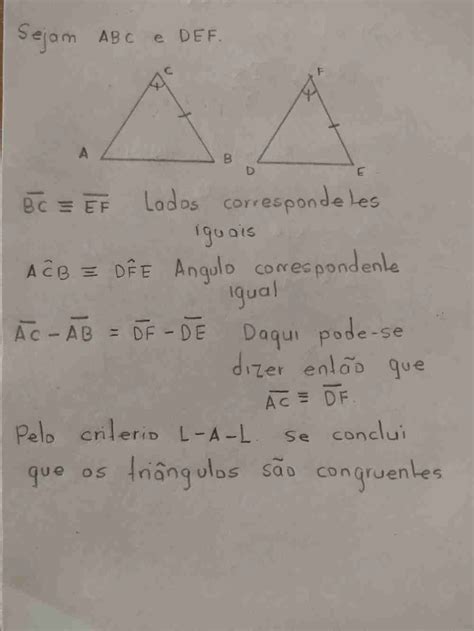 Sejam ABC e DEF.
C
F
A
B
D
E
BC ≡ EF Lados correspondetes
iguais
AĈB ≡ DF̂E Angulo correspondente
igual
AC - AB = DF - DE Daqui pode-se
dizer então que
AC ≡ DF.
Pelo criterio L-A-L. se conclui
que os triângulos são congruentes